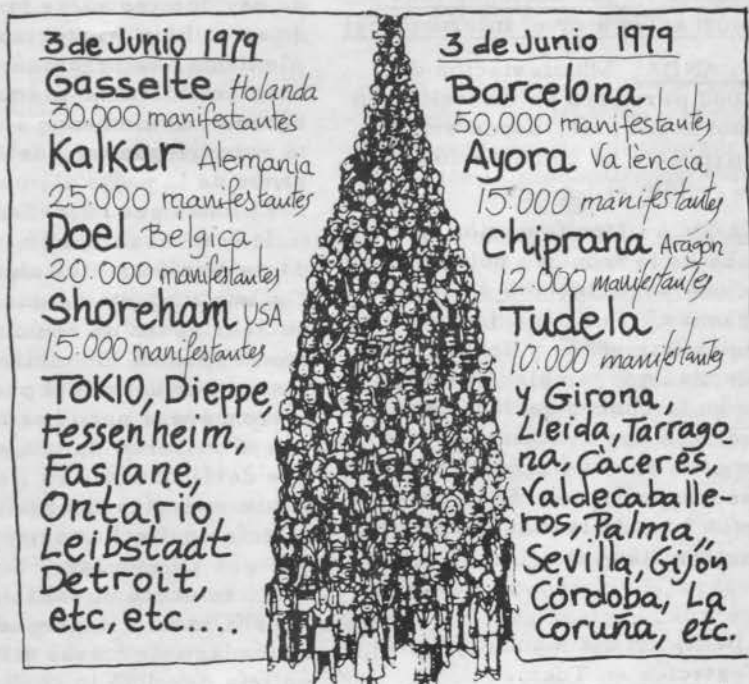 3 de Junio 1979
Gasselte Holanda
30.000 manifestantes
Kalkar Alemania
25.000 manifestantes
Doel Belgica
20.000 manifestantes
Shoreham USA
15.000 manifestantes
TOKIO, Dieppe,
Fessenheim,
Faslane,
Ontario
Leibstadt
Detroit,
etc, etc....
3 de Junio 1979
Barcelona
50.000 manifestantes
Ayora València
15.000 manifestantes
Chiprana Aragón
12.000 manifestantes
Tudela
10.000 manifestantes
y Girona,
Lleida, Tarrago-
na, Càceres,
Valdecaballe-
ros, Palma,
Sevilla, Gijón
Córdoba, La
Coruña, etc.